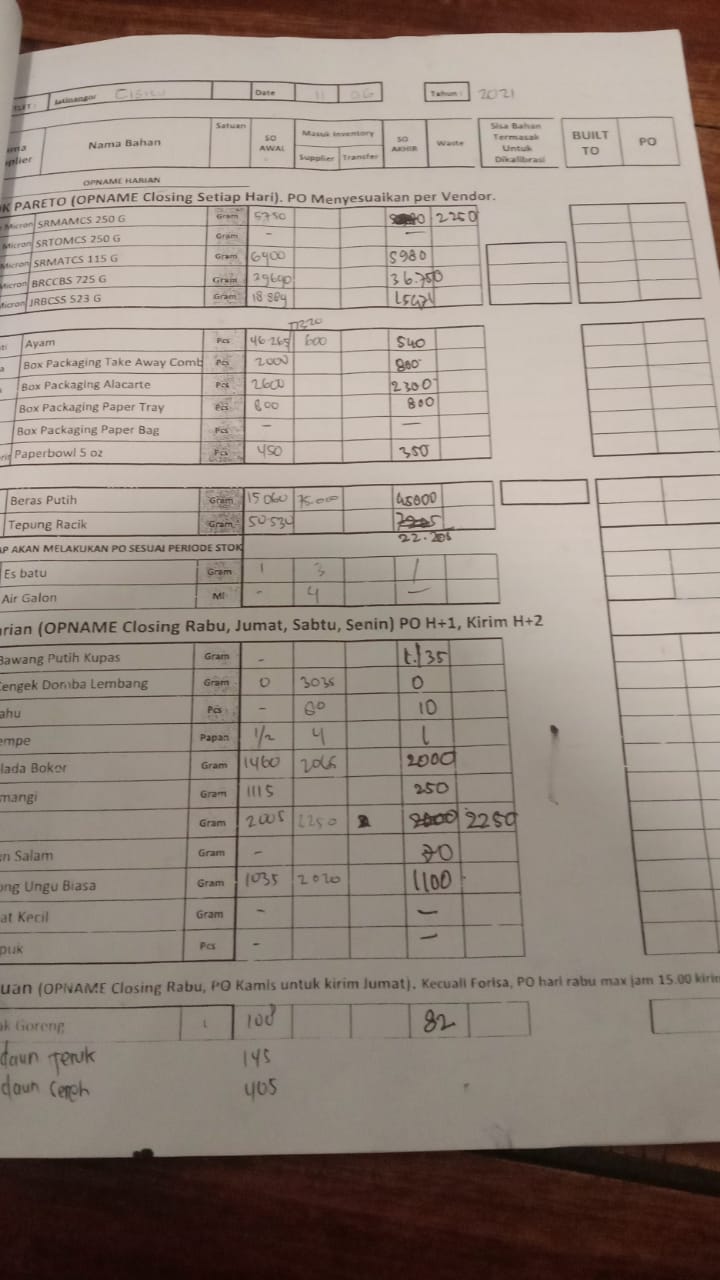 Jatinangor Cisitu Date 11 06 Tahun : 2021
Nama Bahan Satuan SO AWAL Masuk Inventory Supplier Transfer SO AKHIR Waste Sisa Bahan Termasak Untuk Dikalibrasi BUILT TO PO
OPNAME HARIAN
K PARETO (OPNAME Closing Setiap Hari). PO Menyesuaikan per Vendor.
Micron SRMAMCS 250 G Gram 5750 2250
Micron SRTOMCS 250 G Gram - -
Micron SRMATCS 115 G Gram 6400 5980
Micron BRCCBS 725 G Gram 29690 36.750
Micron JRBCSS 523 G Gram 18 984
Ayam Pcs 46.265 600 540
Box Packaging Take Away Comb Pcs 2000 800
Box Packaging Alacarte Pcs 2600 2300
Box Packaging Paper Tray Pcs 800 800
Box Packaging Paper Bag Pcs - -
Paperbowl 5 oz Pcs 450 350
Beras Putih Gram 15 060 75.000 45000
Tepung Racik Gram 50.530
22.205
AP AKAN MELAKUKAN PO SESUAI PERIODE STOK
Es batu Gram 1 3 1
Air Galon Ml - 4 -
rian (OPNAME Closing Rabu, Jumat, Sabtu, Senin) PO H+1, Kirim H+2
Bawang Putih Kupas Gram - 1.135
Cengek Domba Lembang Gram 0 3035 0
ahu Pcs - 60 10
empe Papan 1/2 4 1
lada Bokor Gram 1460 2065 2000
mangi Gram 1115 250
Gram 2005 2250 2250
n Salam Gram - 70
ong Ungu Biasa Gram 1035 2020 1100
at Kecil Gram - -
puk Pcs - -
uan (OPNAME Closing Rabu, PO Kamis untuk kirim Jumat). Kecuali Forisa, PO hari rabu max jam 15.00 kirim
k Goreng 108 82
daun jeruk 145
daun sereh 405